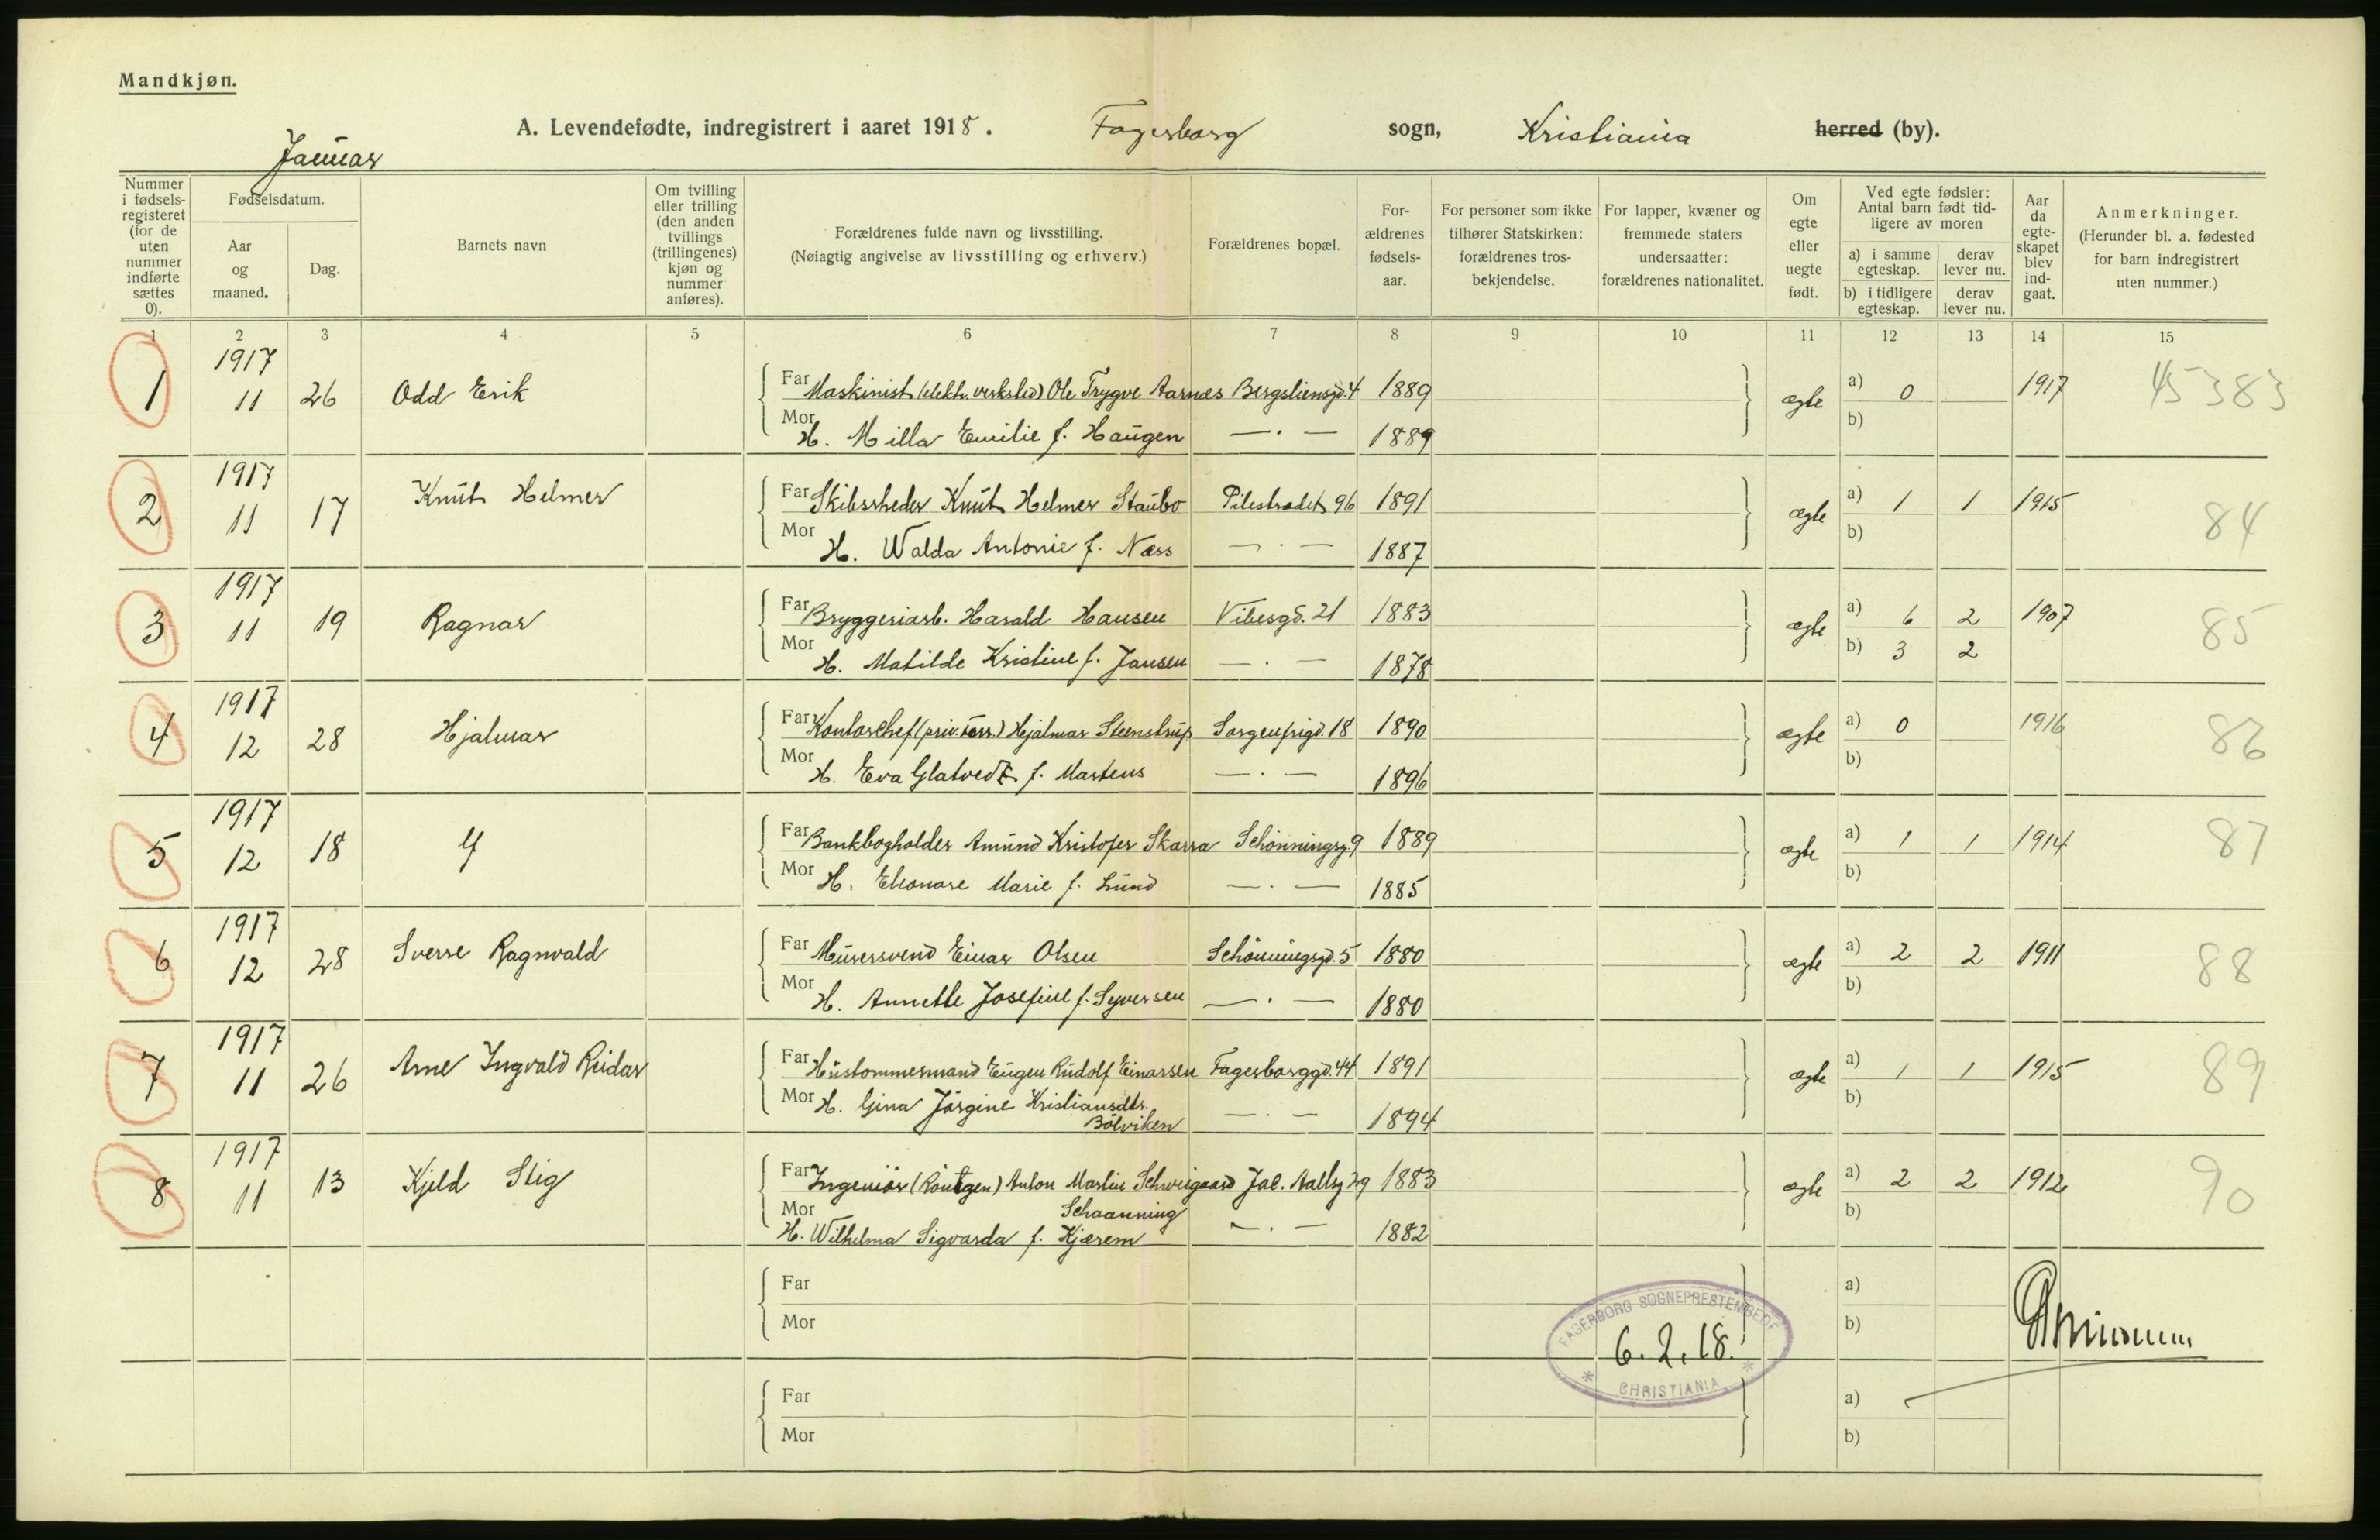 Mandkjøn.
A. Levendefødte, indregistrert i aaret 1918. Fagerborg sogn, Kristiania herred (by).
Januar
Nummer i fødsels-registeret (for de uten nummer indførte sættes 0).
Fødselsdatum.
Aar og maaned.
Dag.
Barnets navn
Om tvilling eller trilling (den anden tvillings (trillingenes) kjøn og nummer anføres).
Forældrenes fulde navn og livsstilling.
(Nøiagtig angivelse av livsstilling og erhverv.)
Forældrenes bopæl.
For-ældrenes fødsels-aar.
For personer som ikke tilhører Statskirken: forældrenes tros-bekjendelse.
For lapper, kvæner og fremmede staters undersaatter: forældrenes nationalitet.
Om egte eller uegte født.
Ved egte fødsler: Antal barn født tid-ligere av moren
a) i samme egteskap.
derav lever nu.
b) i tidligere egteskap.
derav lever nu.
Aar da egte-skapet blev ind-gaat.
Anmerkninger.
(Herunder bl. a. fødested for barn indregistrert uten nummer.)
1 2 3 4 5 6 7 8 9 10 11 12 13 14 15
1917
1 11 26 Odd Erik Far Maskinist (elektr. verksted) Ole Trygve Aarnæs Bergsliensgd. 4 1889 ægte a) 0 1917 45383
Mor H. Milla Emilie f. Haugen —·— 1889 b)
1917
2 11 17 Knut Helmer Far Skibsrheder Knut Helmer Staubo Pilestrædet 96 1891 ægte a) 1 1 1915 84
Mor H. Walda Antonie f. Næss —·— 1887 b)
1917
3 11 19 Ragnar Far Bryggeriarb. Harald Hansen Vibesgd. 21 1883 ægte a) 6 2 1907 85
Mor H. Matilde Kristine f. Jansen —·— 1878 b) 3 2
1917
4 12 28 Hjalmar Far Kontorchef (priv. forr.) Hjalmar Steenstrup Sorgenfrigd. 18 1890 ægte a) 0 1916 86
Mor H. Eva Glatvedt f. Martens —·— 1896 b)
1917
5 12 18 Ulf Far Bankbogholder Amund Kristofer Skarra Schønningsg. 9 1889 ægte a) 1 1 1914 87
Mor H. Eleonore Marie f. Lund —·— 1885 b)
1917
6 12 28 Sverre Ragnvald Far Murersvend Einar Olsen Schønningsgd. 5 1880 ægte a) 2 2 1911 88
Mor H. Annette Josefine f. Syversen —·— 1880 b)
1917
7 11 26 Arne Ingvald Reidar Far Hustømmermand Eugen Rudolf Einarsen Fagerborggd. 44 1891 ægte a) 1 1 1915 89
Mor H. Gina Jørgine Kristiansdtr.
Bølviken —·— 1894 b)
1917
8 11 13 Kjeld Stig Far Ingeniør (Røntgen) Anton Martin Schweigaard Jac. Aallsg 29 1883 ægte a) 2 2 1912 90
Schaanning
Mor H. Wilhelma Sigvarda f. Kjærem —·— 1882 b)
Far a)
Mor b)
FAGERBORG SOGNEPRESTEMBEDE
6.2.18.
* CHRISTIANIA *
Far a)
Mor b)